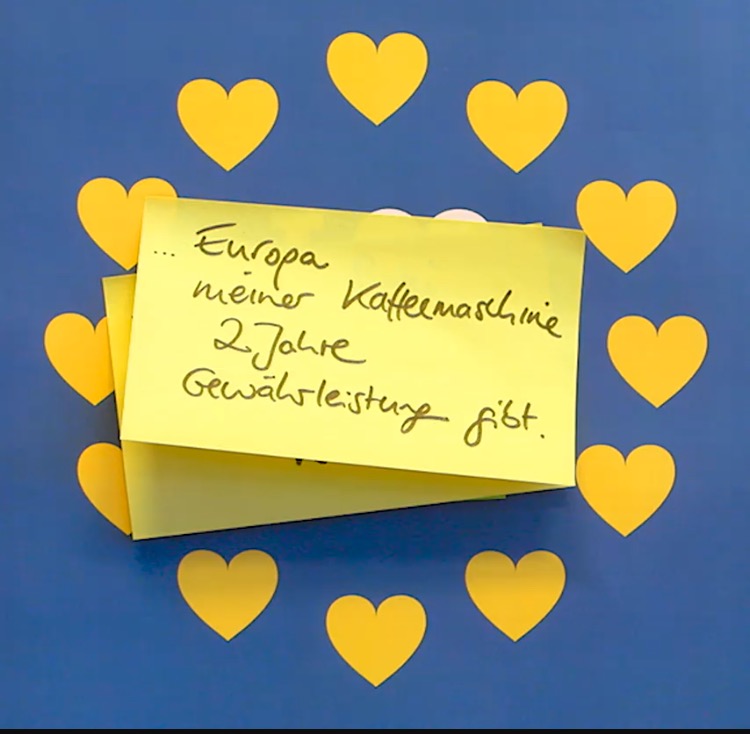 ... Europa
meiner Kaffeemaschine
2 Jahre
Gewährleistung gibt.